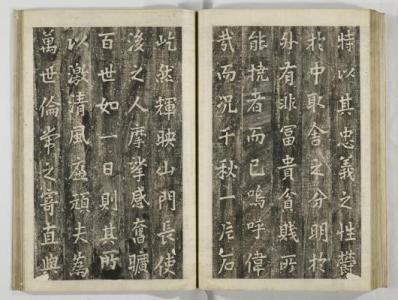 特以其忠義之性欝
於中取舎之分明於
外有非冨貴貧賤所
能撓者而已嗚呼偉
哉而况千秋一片石
屹然輝映山門長使
後之人摩挲感奮曠
百世如一日則其所
以激清風廉頑夫為
萬世倫常之寄直與